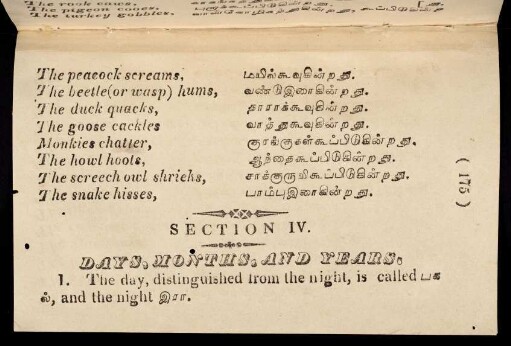 The rook caws,
The pigeon cooes,
The turkey gobbles.
The peacock screams, மயில்கூவுகின்றது.
The beetle(or wasp) hums, வண்டுஇரைகின்றது.
The duck quacks, தாராக்கூவுகின்றது.
The goose cackles வாத்துகூவுகின்றது.
Monkies chatter, குரங்குகள்கூப்பிடுகின்றது.
The howl hoots, ஆந்தைகூப்பிடுகின்றது.
The screech owl shrieks, சாக்குருவிகூப்பிடுகின்றது.
The snake hisses, பாம்புஇரைகின்றது.
( 175 )
SECTION IV.
DAYS, MONTHS, AND YEARS.
1. The day, distinguished from the night, is called பக
ல், and the night இரா.